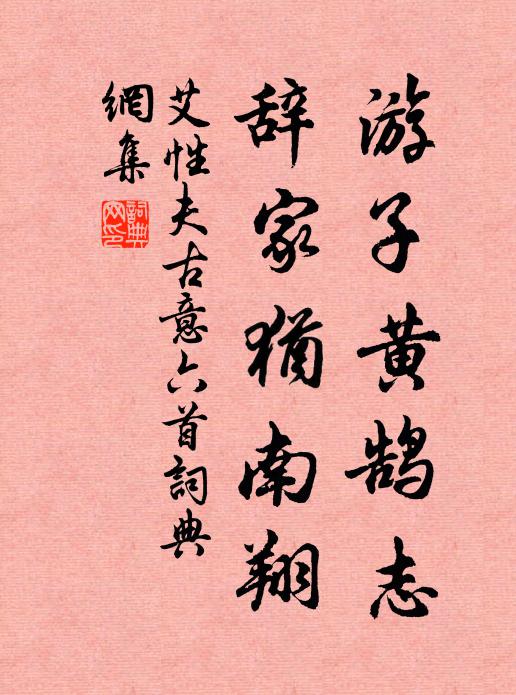 游子黄鹄志
辞家犹南翔
艾性夫古意六首詞典
網集
詞典
网印